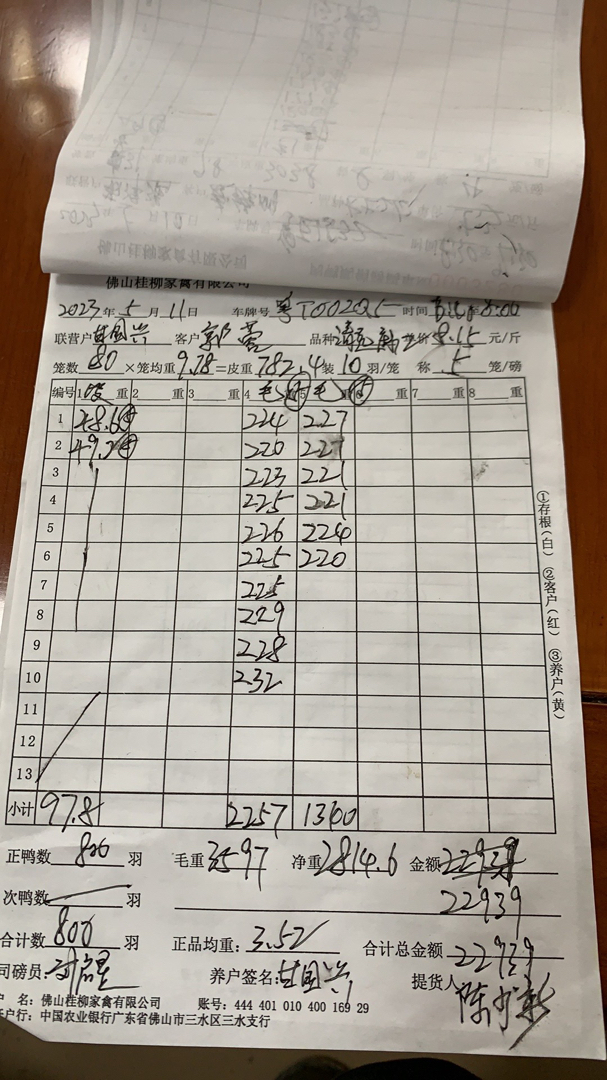 佛山桂柳家禽有限公司
2023年5月11日 车牌号粤T00205 时间 8:00
联营户甘国兴 客户郭 品种 价8.15元/斤
笼数80×笼均重9.78=皮重782.4装10羽/笼 称5笼/磅
编号 1 重 2 重 3 重 4毛重 5毛重 6 重 7 重 8 重
1 48.6 224 227
2 49.2 220 227
3 223 221
4 225 221
5 226 224
6 225 220
7 225
8 229
9 228
10 232
11
12
13
小计 97.8 2257 1340
正鸭数800羽 毛重3597 净重2814.6 金额22939
次鸭数 羽 22939
合计数800羽 正品均重:3.52 合计总金额22939
司磅员: 养户签名:甘国兴 提货人
户 名:佛山桂柳家禽有限公司 账号:444 401 010 400 169 29
户行:中国农业银行广东省佛山市三水区三水支行
①存根(白) ②客户(红) ③养户(黄)